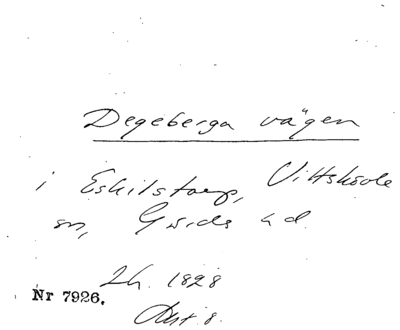 Degeberga vägen
i Eskilstorp, Vittskövle
sn, Gärds hd.
Lh. 1828
Nr 7926.
Akt 8.